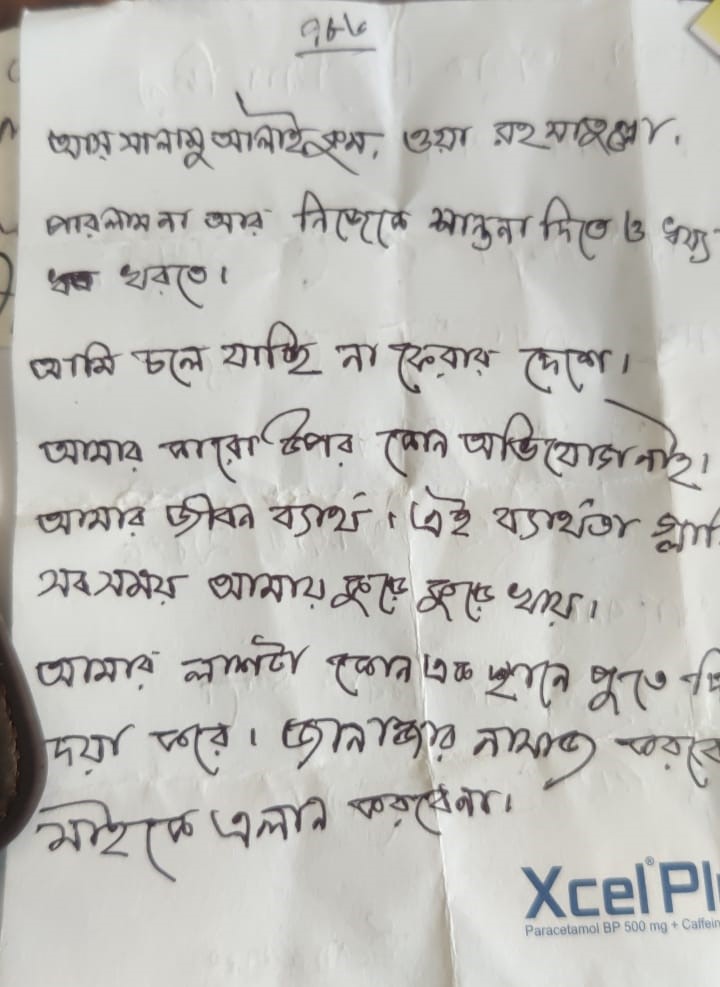 ৭৮৬
আস সালামু আলাইকুম, ওয়া রহমাতুল্লা,
পারলাম না আর নিজেকে শান্তনা দিতে ও ধয্য
ধরতে।
আমি চলে যাচ্ছি না ফেরার দেশে।
আমার কারো উপর কোন অভিযোগ নাই।
আমার জীবন ব্যার্থ। এই ব্যার্থতা
সব সময় আমায় কুড়ে কুড়ে খায়।
আমার লাশটা কোন এক স্থানে পুতে
দয়া করে। জানাজার নামাজ
মাইকে এলান করবেনা।
Xcel
Paracetamol BP 500 mg + Caffein